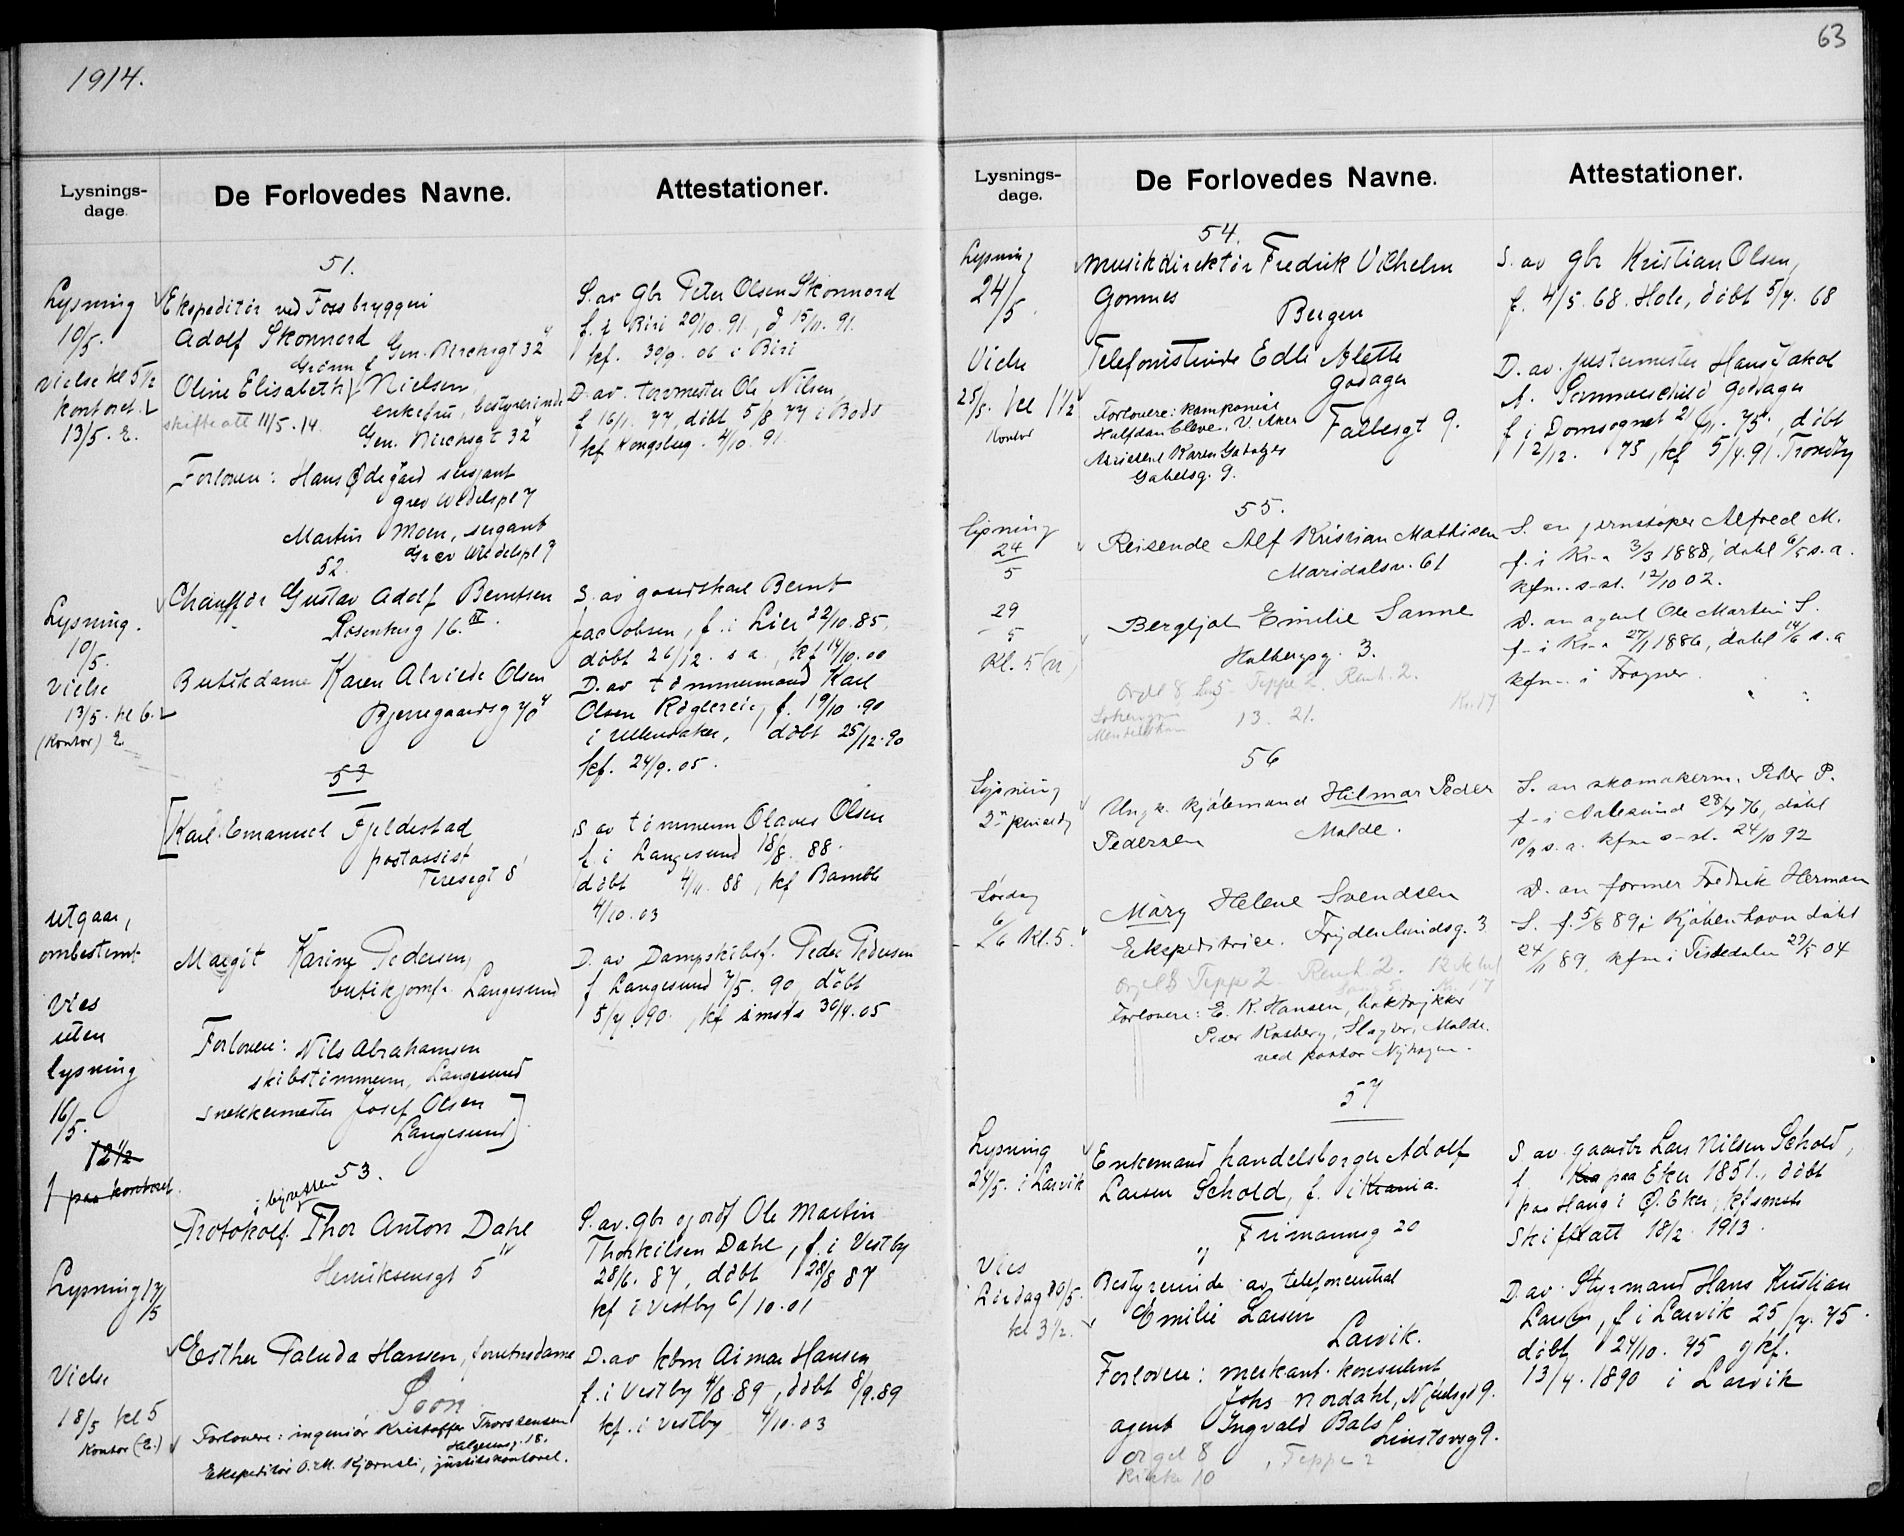 63
1914.
Lysnings-
dage.
De Forlovedes Navne.
Attestationer.
51.
Lysning
10/5.
vielse kl 5 1/2
kontoret.
13/5. E.
Ekspeditør ved Foss bryggeri
Adolf Skonnord
Gen. Birchsgt 32"
Grønn f
Oline Elisabeth Nielsen,
enkefru, bestyrerinde
skifteatt 11/5.14.
Gen. Birchsgt 32"
Forlovere: Hans Ødegård sersjant
grev Wedelspl 7
Martin Moen, sergant
Grev Wedelspl 7
S. av gbr Peter Olsen Skonnord
f. i Biri 20/10. 91., d 15/11. 91.
kf. 30/9. 06 i Biri
D. av. tørvmester Ole Nilsen
f 16/1 77, døbt 5/8 77 i Bodø
kf Kongsberg. 4/10. 91
52.
Lysning.
10/5.
vielse
13/5. kl 6.
(Kontor) E.
Chauffør Gustav Adolf Berntsen
Rosenborg 16. III.
Butikdame Karen Alvilde Olsen
Bjerregaardsg 40"
S. av gaardskarl Bernt
Jacobsen, f. i Lier 22/10. 85,
døbt 26/12. s a., kf 14/10. 00
D. av tømmermand Karl
Olsen f. 19/10. 90
i Ullensaker, døbt 25/12. 90
kf. 24/9. 05.
53
utgaar,
ombestemt
Vies
uten
lysning
16/5.
12 1/2
paa kontoret.
Karl Emanuel Fjeldestad
postassist
Teresegt 8
Margit Karine Pedersen,
butikjomfr. Langesund
Forlovere: Nils Abrahamsen
skibstimmerm, Langesund
snekkermester Josef Olsen
Langesund
S av tømmerm Olaves Olsen
f. i Langesund 18/8. 88.
døbt 4/11. 88, kf Bamble
4/10. 03
D. av Dampskibsf. Peder Pedersen
f Langesund 7/5. 90, døbt
5/7. 90., kf smsts 30/4. 05
53.
Lysning 17/5
Vielse
18/5 kl 5
Kontor (E.)
i byretten
Protokolf. Thor Anton Dahl
Henriksensgt 5 IV
Esther Paluda Hansen, forretnsdame
Soon
Forlovere: ingeniør Kristoffer Thorstensen
Helgesensg. 18.
Ekspeditør O. M. Kjærnsli, justiskontoret.
S. av. gbr og ordf Ole Martin
Thorkilsen Dahl, f. i Vestby
28/6. 87, døbt 28/8 87
kf i Vestby 6/10. 01
D. av kbm Aimar Hansen
f. i Vestby 4/8 89, døbt 8/9. 89
kf. i Vestby 4/10. 03
Lysnings-
dage.
De Forlovedes Navne.
Attestationer.
54.
Lysning
24/5
Vielse
25/5. kl 1 1/2
Kontor
Musikdirektør Fredrik Vilhelm
Gomnes
Bergen
Telefonistinde Edle Alette
Godager
Forlovere: komponist
Halfdan Cleve, V. Aker
Frøken Karen Godager
Gabelsg. 9.
Falbesgt 9.
S. av gbr Kristian Olsen,
f. 4/5. 68. Hole, døbt 5/7. 68
D. av. justermester Hans Jakob
A. Sommerschild Godager
f i Domsognet 21/11. 75., døbt
12/12. 75, kf 5/4. 91. Trondhj
55.
Lysning
24
5
29
5
Kl. 5 (N)
Reisende Alf Kristian Mathisen
Maridalsv. 61
Bergljot Emilie Sanne
Holbergsg. 3.
Orgel 8 Teppe 2. Renh. 2.
13. 21. Kr. 17
S. av jernstøper Alfred M.
f. i Kr.a 3/3 1888, døbt 6/5 s. a.
kfm. s-st. 12/10 02.
D. av agent Ole Martin S.
f- i Kr-a 27/1 1886, døbt 14/6 s. a
kfm. i Frogner.
56
Lysning
2. pinsedag
Lørdag
6/6 Kl. 5.
Ungk. kjøbmand Hilmar Peder
Pedersen Molde.
Mary Helene Svendsen
Ekspeditrice. Frydenlundsg. 3
Orgel 8 Teppe 2. Renh. 2.
Forlovere: E. K. Hansen, boktrykker
Peder Kosberg, Slagter, Molde.
ved pastor Nyhagen.
S. av skomakerm. Peder P.
f- i Aalesund 28/7 76, døbt
10/9 s. a. kfm s-st. 24/10 92
D. av former Fredrik Herman
S. f. 5/8 89, i Kjøbenhavn døbt
24/11 89, kfm i Tistedalen 29/5 04
57
Lysning
24/5. i Larvik
Vies
Lørdag 30/5.
kl 3 1/2.
Enkemand handelsborger Adolf
Larsen Schold, f. i Krania.
Frimannsg 20
Bestyrerinde av telefoncentral
Emilie Larsen
Larvik.
Forlovere: merkant. konsulent
Johs Nordahl, Njaelsgt 9.
agent Ingvald Bals
Linstowsg 9.
Orgel 8, Teppe 2
Kirke 10
S av gaardbr Lars Nilsen Schold,
f. Kra paa Eker 1851., døbt
paa Haug i Ø. Eker, kf smsts
Skifteatt 18/2 1913.
D. av Styrmand Hans Kristian
Larsen, f i Larvik 25/7. 75.
døbt 24/10. 75 og kf.
13/4. 1890 i Larvik